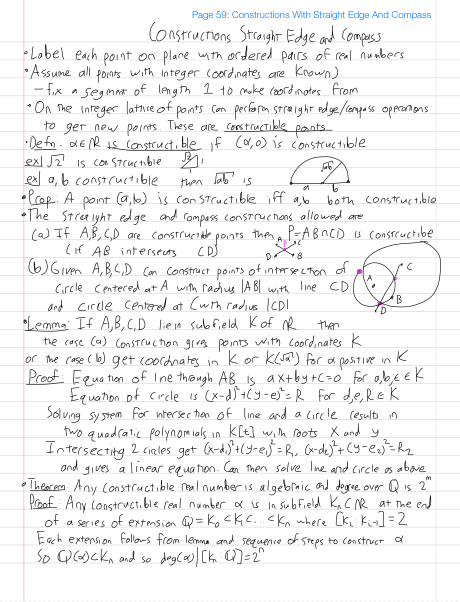 Page 59: Constructions With Straight Edge And Compass
Constructions Straight Edge and Compass
• Label each point on plane with ordered pairs of real numbers
• Assume all points with integer coordinates are known)
– fix a segment of length 1 to make coordinates from
• On the integer lattice of points can perform straight edge/compass operations
to get new points. These are constructible points
• Defn: α∈ℝ is constructible if (α,0) is constructible
ex| √2 is constructible √2 1 1
ex| a,b constructible then √ab is √ab a b
• Prop: A point (a,b) is constructible iff a,b both constructible
• The straight edge and compass constructions allowed are
(a) If A,B,C,D are constructible points then P=AB∩CD is constructible
(if AB intersects CD) A P C D B
(b) Given A,B,C,D can construct points of intersection of
circle centered at A with radius |AB| with line CD
and circle centered at C with radius |CD|
A C B D
• Lemma: If A,B,C,D lie in subfield K of ℝ then
the case (a) construction gives points with coordinates K
or the case (b) get coordinates in K or K(√α) for α positive in K
Proof: Equation of line through AB is ax+by+c=0 for a,b,c∈K
Equation of circle is (x-d)²+(y-e)²=R for d,e,R∈K
Solving system for intersection of line and a circle results in
two quadratic polynomials in K[t] with roots x and y
Intersecting 2 circles get (x-d₁)²+(y-e₁)²=R₁ (x-d₂)²+(y-e₂)²=R₂
and gives a linear equation. Can then solve line and circle as above
• Theorem: Any constructible real number is algebraic and degree over ℚ is 2ᵐ
Proof: Any constructible real number α is in subfield Kₙ⊂ℝ at the end
of a series of extension ℚ=K₀<K₁<...<Kₙ where [Kᵢ:Kᵢ₋₁]=2
Each extension follows from lemma and sequence of steps to construct α.
So ℚ(α)<Kₙ and so deg(α)|[Kₙ:ℚ]=2ⁿ